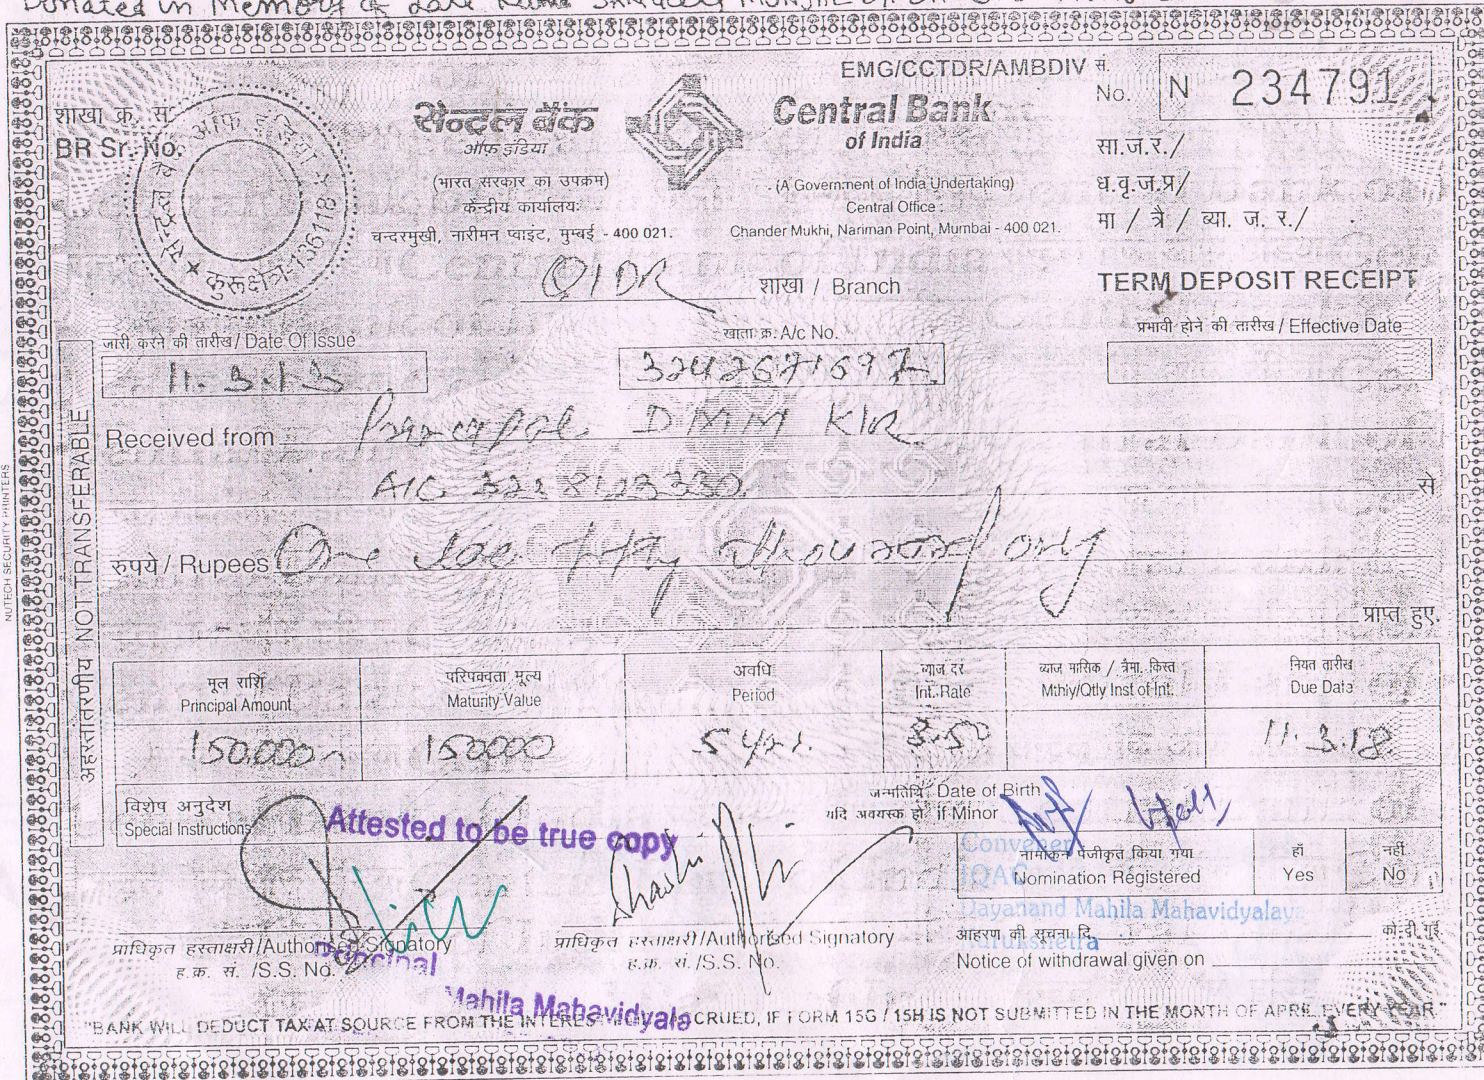 Donated in Memory of Late
EMG/CCTDR/AMBDIV सं.
No. N 234791
शाखा क्र. सं.
BR Sr. No.
कुरूक्षेत्र-136118
सेन्ट्रल बैंक
ऑफ इंडिया
(भारत सरकार का उपक्रम)
केन्द्रीय कार्यालयः
चन्दरमुखी, नारीमन प्वाइंट, मुम्बई - 400 021.
Central Bank
of India
(A Government of India Undertaking)
Central Office :
Chander Mukhi, Nariman Point, Mumbai - 400 021.
सा.ज.र./
ध.वृ.ज.प्र/
मा / त्रै / व्या. ज. र./
TERM DEPOSIT RECEIPT
शाखा / Branch
जारी करने की तारीख / Date Of Issue
11.3.13
खाता क्र. A/c No.
3242671697
प्रभावी होने की तारीख / Effective Date
Received from Principal DMM KKR
A/C 3228123330 से
रुपये / Rupees One lac fifty thousand only
प्राप्त हुए.
अहस्तांतरणीय NOT TRANSFERABLE
NUTECH SECURITY PRINTERS
मूल राशि
Principal Amount
परिपक्वता मूल्य
Maturity Value
अवधि
Period
ब्याज दर
Int. Rate
ब्याज मासिक / त्रैमा. किस्त
Mthly/Qtly Inst of Int.
नियत तारीख
Due Date
150000 150000 5 yrs. 8.50 11.3.18
विशेष अनुदेश
Special Instructions
Attested to be true copy
जन्मतिथि Date of Birth
यदि अवयस्क हो If Minor
Convener
IQAC
Dayanand Mahila Mahavidyalaya
Kurukshetra
नामांकन पंजीकृत किया गया
Nomination Registered
हाँ
Yes
नहीं
No
प्राधिकृत हस्ताक्षरी/Authorised Signatory
ह.क्र. सं. /S.S. No.
प्राधिकृत हस्ताक्षरी/Authorised Signatory
ह.क्र. सं. /S.S. No.
आहरण की सूचना दि. को दी गई
Notice of withdrawal given on
Principal
Mahila Mahavidyala
"BANK WILL DEDUCT TAX AT SOURCE FROM THE INTEREST CRUED, IF FORM 15G / 15H IS NOT SUBMITTED IN THE MONTH OF APRIL EVERY YEAR."